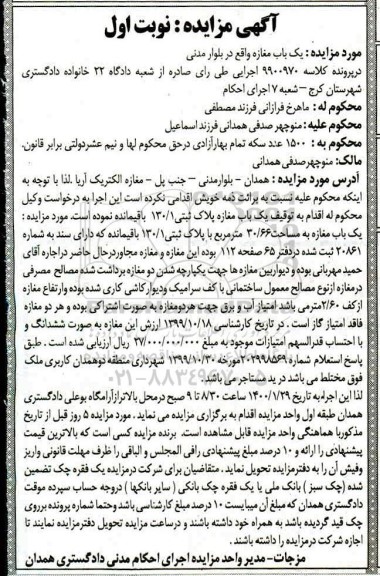 آگهی مزایده : نوبت اول
مورد مزایده : یک باب مغازه واقع در بلوار مدنی
درپرونده کلاسه ۹۹۰۰۹۷۰ اجرایی طی رای صادره از شعبه دادگاه ۲۲ خانواده دادگستری
شهرستان کرج – شعبه ۷ اجرای احکام
محکوم له : ماهرخ فرازانی فرزند مصطفی
محکوم علیه : منوچهر صدفی همدانی فرزند اسماعیل
محکوم به : ۱۵۰۰ عدد سکه تمام بهارآزادی درحق محکوم لها و نیم عشردولتی برابر قانون،
مالک: منوچهرصدفی همدانی
آدرس مورد مزایده : همدان – بلوارمدنی – جنب پل – مغازه الکتریک آریا .لذا با توجه به
اینکه محکوم علیه نسبت به برائت ذمه خویش اقدامی نکرده است این اجرا به درخواست وکیل
محکوم له اقدام به توقیف یک باب مغازه پلاک ثبتی۱۳۰/۱ باقیمانده نموده است، مورد مزایده :
یک باب مغازه به مساحت۳۰/۶۶ مترمربع با پلاک ثبتی۱۳۰/۱ باقیمانده که دارای سند به شماره
۲۰۸۶۱ ثبت شده دردفتر ۶۵ صفحه ۱۱۲ بوده این مغازه و مغازه مجاوردرحال حاضر دراجاره آقای
حمید مهربانی بوده و دیواربین مغازه ها جهت یکپارچه شدن دو مغازه برداشت شده مصالح مصرفی
درمغازه ازنوع مصالح معمول ساختمانی با کف سرامیک ودیوارکاشی کاری شده بوده وارتفاع مغازه
ازکف ۲/۶۰مترمی باشد امتیاز آب و برق جهت هردومغازه به صورت اشتراکی بوده و هر دو مغازه
فاقد امتیاز گاز است . در تاریخ کارشناسی ۱۳۹۹/۱۰/۱۸ ارزش این مغازه به صورت ششدانگ و
با احتساب قدرالسهم امتیازات موجود به مبلغ ۲۷/۰۰۰/۰۰۰/۰۰۰ ریال ارزیابی شده است . طبق
پاسخ استعلام شماره ۲۰۲۹۹۸۵۶۹مورخه ۱۳۹۹/۱۰/۳۰ شهرداری منطقه دوهمدان کاربری ملک
فوق مختلط می باشد در ید مستاجر می باشد.
لذا این اجرا‌به تاریخ ۱۴۰۰/۱/۲۹ ساعت ۸/۳۰ تا ۹ صبح درمحل بالاترازآرامگاه بوعلی دادگستری
همدان طبقه اول واحد مزایده اقدام به برگزاری مزایده می نماید . مورد مزایده ۵ روز قبل از تاریخ
مذکوربا هماهنگی واحد مزایده قابل مشاهده است. برنده مزایده کسی است که بالاترین قیمت
پیشنهادی را ارائه و ۱۰ درصد مبلغ پیشنهادی رافی المجلس و الباقی را ظرف مهلت قانونی واریز
وفیش آن را به دفترمزایده تحویل نماید . متقاضیان برای شرکت درمزایده یک فقره چک تضمین
شده (چک سبز ) بانک ملی یا یک فقره چک بانکی ( سایر بانکها ) دروجه حساب سپرده موقت
دادگستری همدان که مبلغ آن میبایست ۱۰ درصد مبلغ کارشناسی باشد وحتما شماره پرونده برروی
چک قید گردیده باشد به همراه خود داشته باشند و درساعت مزایده تحویل دفترمزایده نمایند تا
اجازه شرکت درمزایده را داشته باشند .
مزجات- مدیر واحد مزایده اجرای احکام مدنی دادگستری همدان
۰۲۱-۸۸۳۴۹۶۷۰-۵